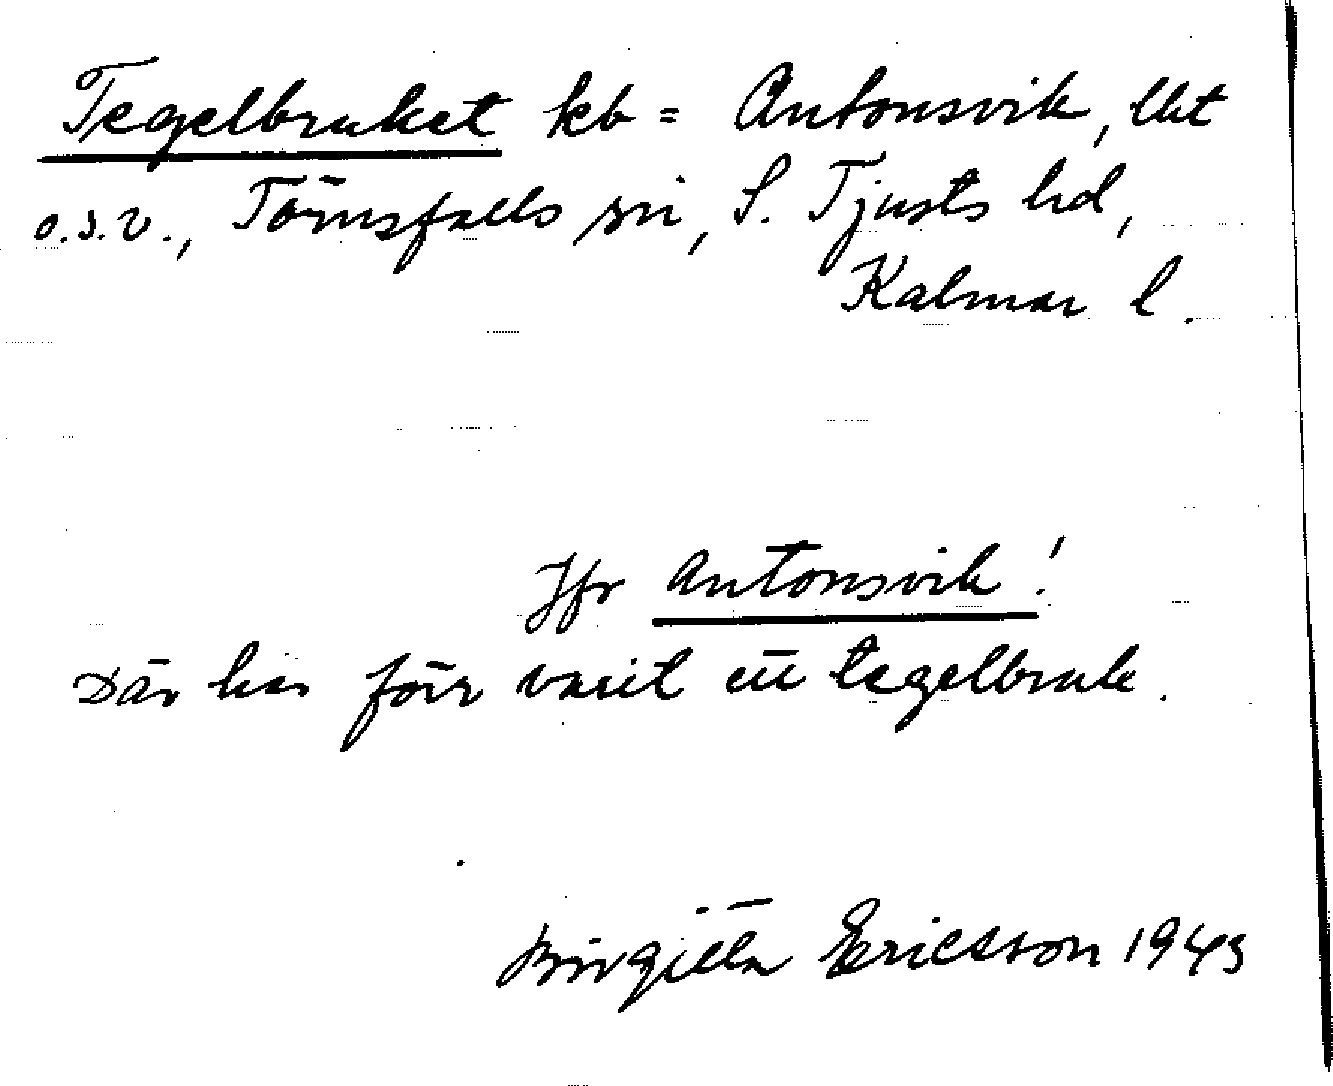 Tegelbruket kb = Antonsvik, lht
o.s.v., Törnsfalls sn, S. Tjusts hd,
Kalmar l.
Jfr Antonsvik!
Där har förr varit ett tegelbruk.
Birgitta Ericsson 1943